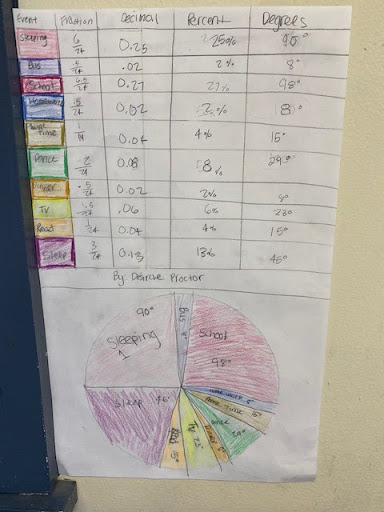 Event Fraction Decimal Percent Degrees
Sleeping 6/24 0.25 25% 90°
Bus .5/24 .02 2% 8°
School 6.5/24 0.27 27% 98°
Homework .5/24 0.02 2% 8°
Time 1/24 0.04 4% 15°
Dance 2/24 0.08 8% 29°
Dinner .5/24 0.02 2% 8°
TV 1.5/24 .06 6% 23°
Read 1/24 0.04 4% 15°
Sleep 3/24 0.13 13% 45°
By Proctor
90°
Sleeping
1
Bus 8°
School
98°
Sleep
Home work 8°
Time 15°
Dance 29°
Dinner 8°
TV 23°
Read 15°